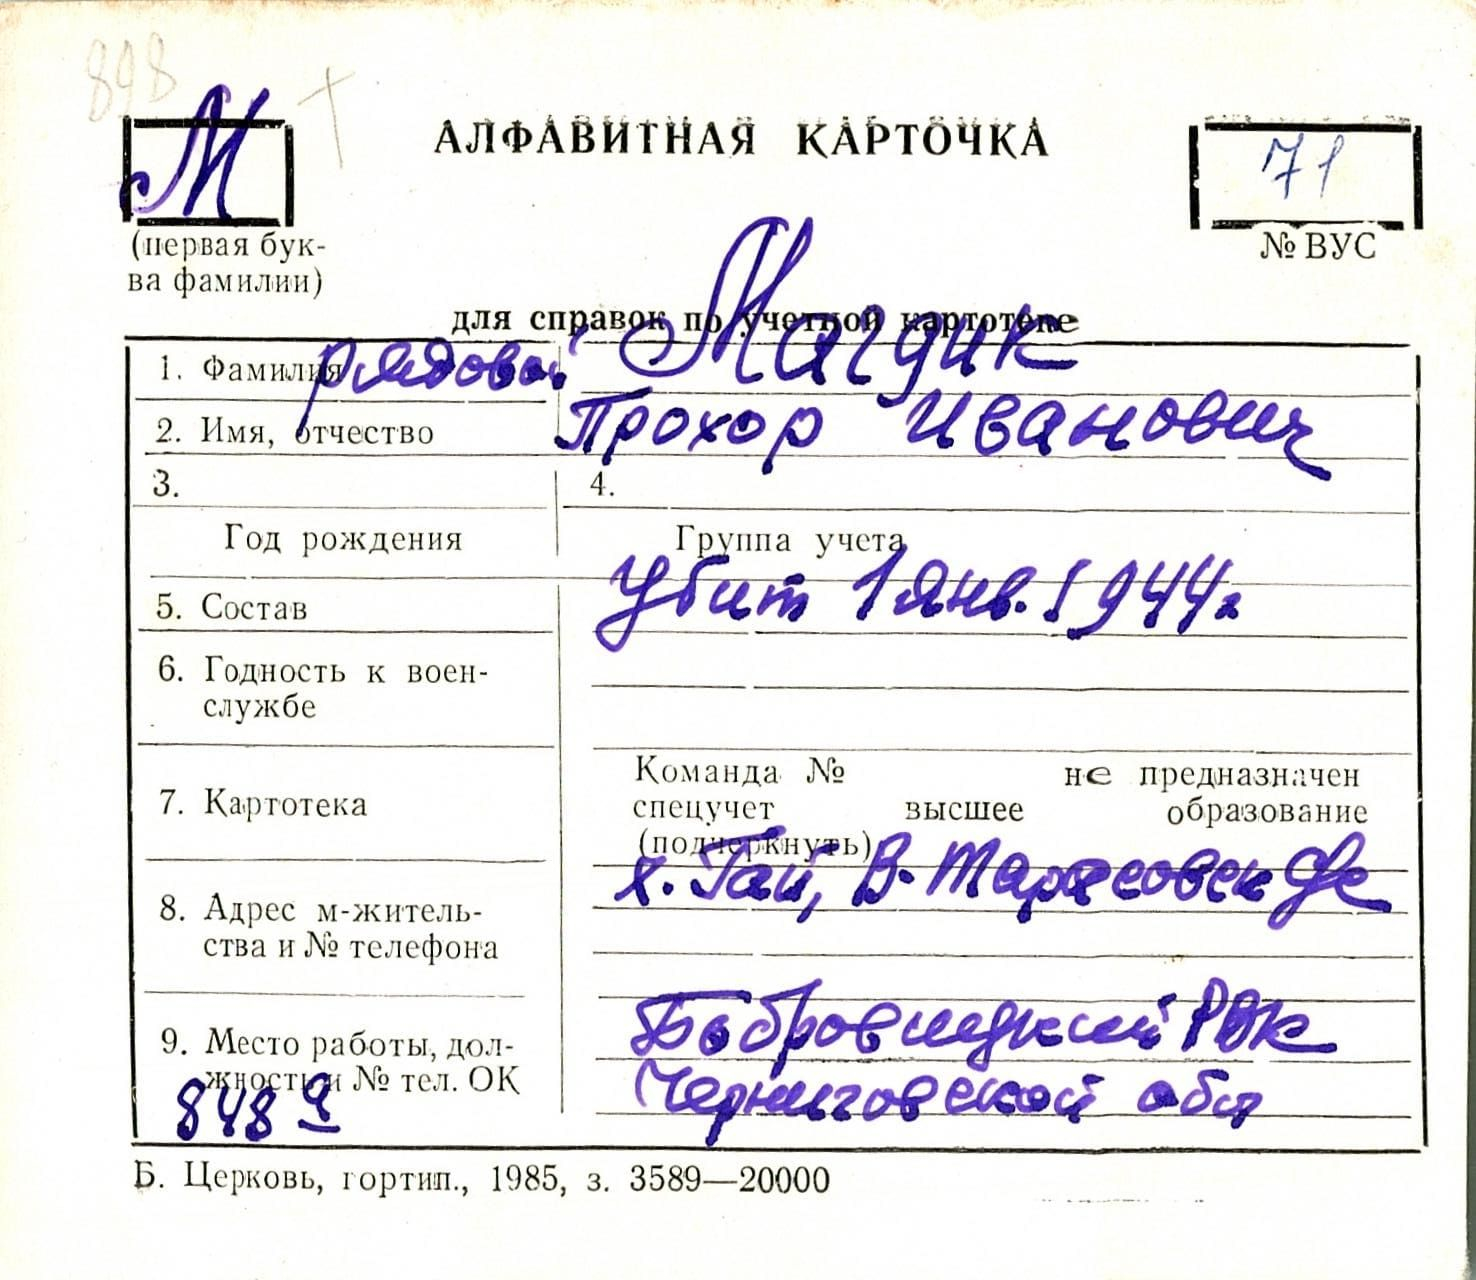 898
М
АЛФАВИТНАЯ КАРТОЧКА
71
(первая бук-
ва фамилии)
№ ВУС
для справок по учетной картотеке
1. Фамилия рядовой Магдик
2. Имя, отчество Прохор Иванович
3.
4.
Год рождения
Группа учета
5. Состав
Убит 1 янв. 1944г
6. Годность к воен-
службе
7. Картотека
Команда № не предназначен
спецучет высшее образование
(подчеркнуть)
8. Адрес м-житель-
ства и № телефона
х. Гай, В-Тарасовск
9. Место работы, дол-
жность и № тел. ОК
Бобровицкий РВК
Черниговской обл
848
Б. Церковь, гортип., 1985, з. 3589—20000